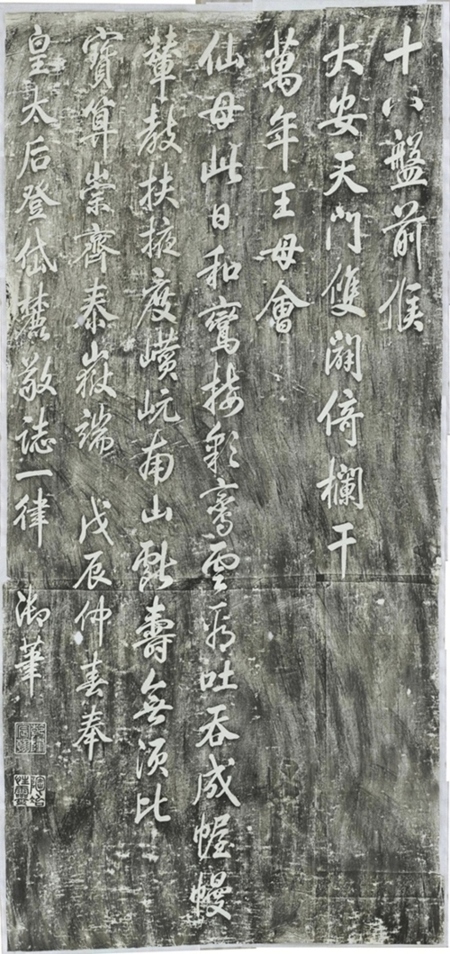 十八盤前候
大安天門雙開倚欄干
萬年王母會
仙母此日和鸞接彩鸞雲為吐吞成幄幔
輦教扶掖度巑岏南山獻壽無須比
寶算崇齊泰嶽端 戊辰仲春奉
皇太后登岱麓敬誌一律 御筆